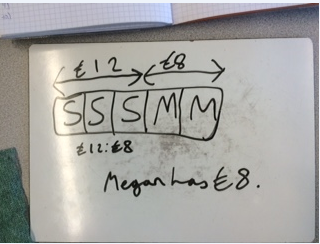 £12 £8
S S S M M
£12:£8
Megan has £8.